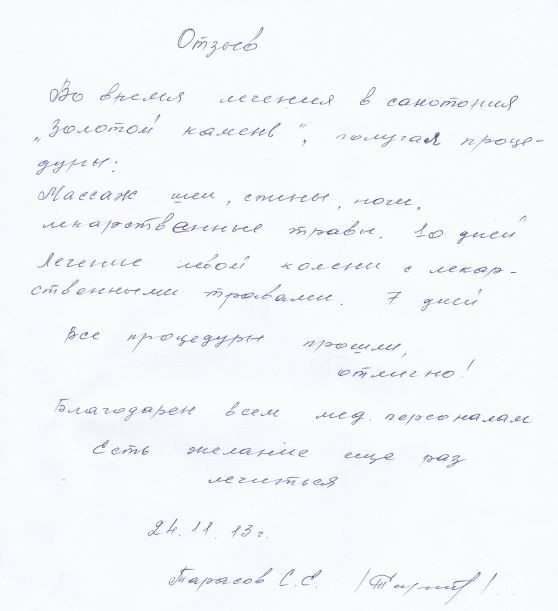 Отзыв
Во время лечения в санотория
„Золотой камень", получал проце-
дуры:
Массаж шеи, спины, ноги,
лекарственные травы. 10 дней
Лечение левой колени с лекар-
ственными травами. 7 дней
Все процедуры прошли,
отлично!
Благодарен всем мед. персоналам
Есть желание еще раз
лечиться
24.11.13г.
Тарасов С.Е.